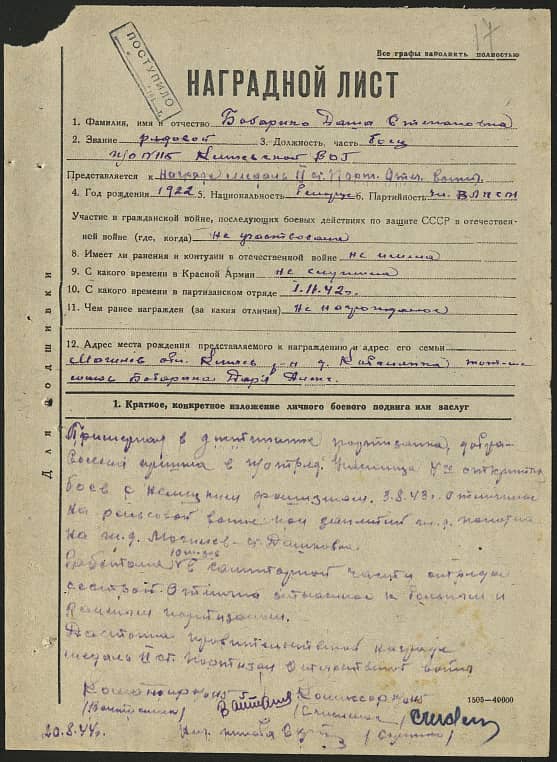 17
Все графы заполнить полностью
ПОСТУПИЛО
НАГРАДНОЙ ЛИСТ
1. Фамилия, имя и отчество Бобарико Даша Степановна
2. Звание рядовой 3. Должность, часть боец
п/о №115 Кличевской ВОГ
Представляется к награде медаль II ст. Парт. Отеч. войны
4. Год рождения 1922 5. Национальность Белорус 6. Партийность чл. ВЛКСМ
Участие в гражданской войне, последующих боевых действиях по защите СССР в отечествен-
ной войне (где, когда) не участвовала
8. Имеет ли ранения и контузии в отечественной войне не имела
9. С какого времени в Красной Армии не служила
10. С какого времени в партизанском отряде 1.II.42г.
11. Чем ранее награжден (за какия отличия) не награждалась
12. Адрес места рождения представляемого к награждению и адрес его семьи
Могилев обл. Кличев р-н д.
Бобарико
Для подшивки
1. Краткое, конкретное изложение личного боевого подвига или заслуг
Примерная в партизанка, добро-
вольно пришла в п/отряд. Участница 4-х открытых
боев с немецким фашизмом. 3.8.43г. отличилась
на рельсовой войне при ж.д. полотна
на ж.д. Могилев - ст. Дашковка.
Работала в санитарной части отряда
сестрой. Отлично относилась к больным и
раненым партизанам.
Достойна правительственной награде
медаль II ст. Партизан Отечественной войны
Командир п/о 115 Комиссар п/о 115
1505-40000
20.8.44г. Нач. штаба